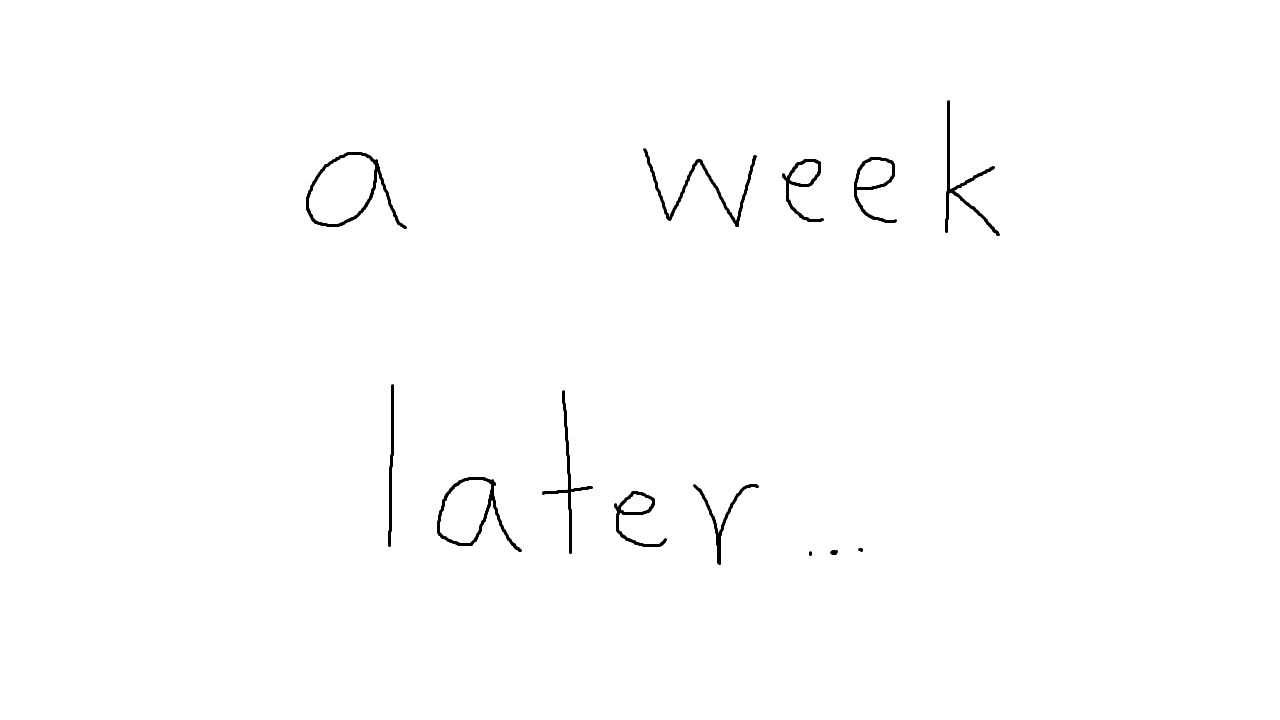 a week
later...